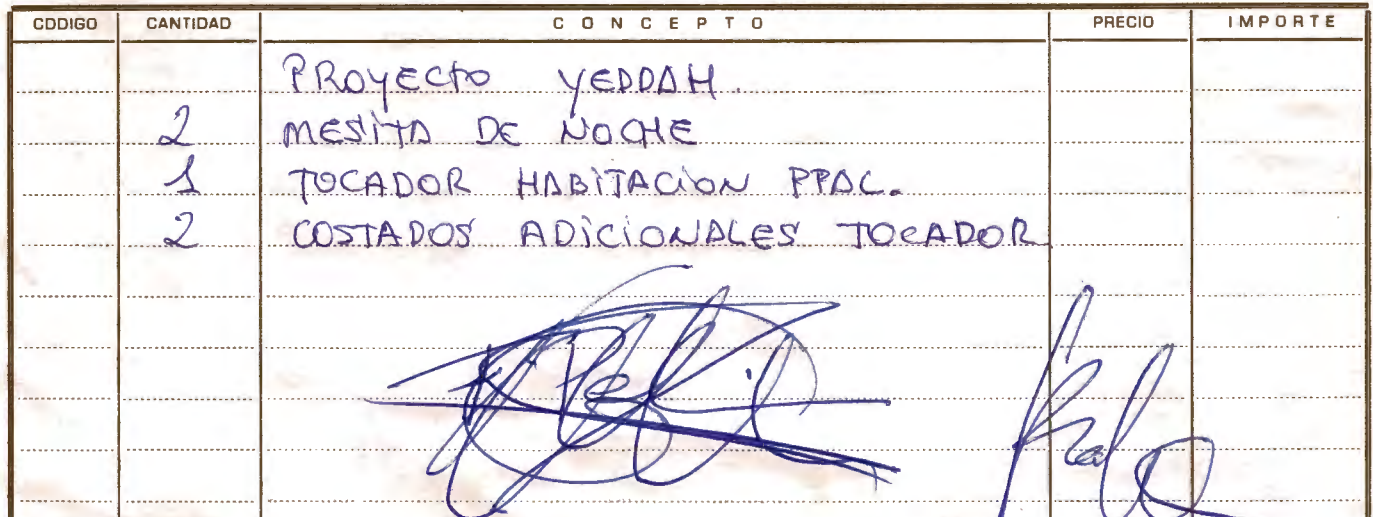 CODIGO CANTIDAD CONCEPTO PRECIO IMPORTE
PROYECTO YEDDAH.
2 MESITA DE NOCHE
1 TOCADOR HABITACION PPAL.
2 COSTADOS ADICIONALES TOCADOR